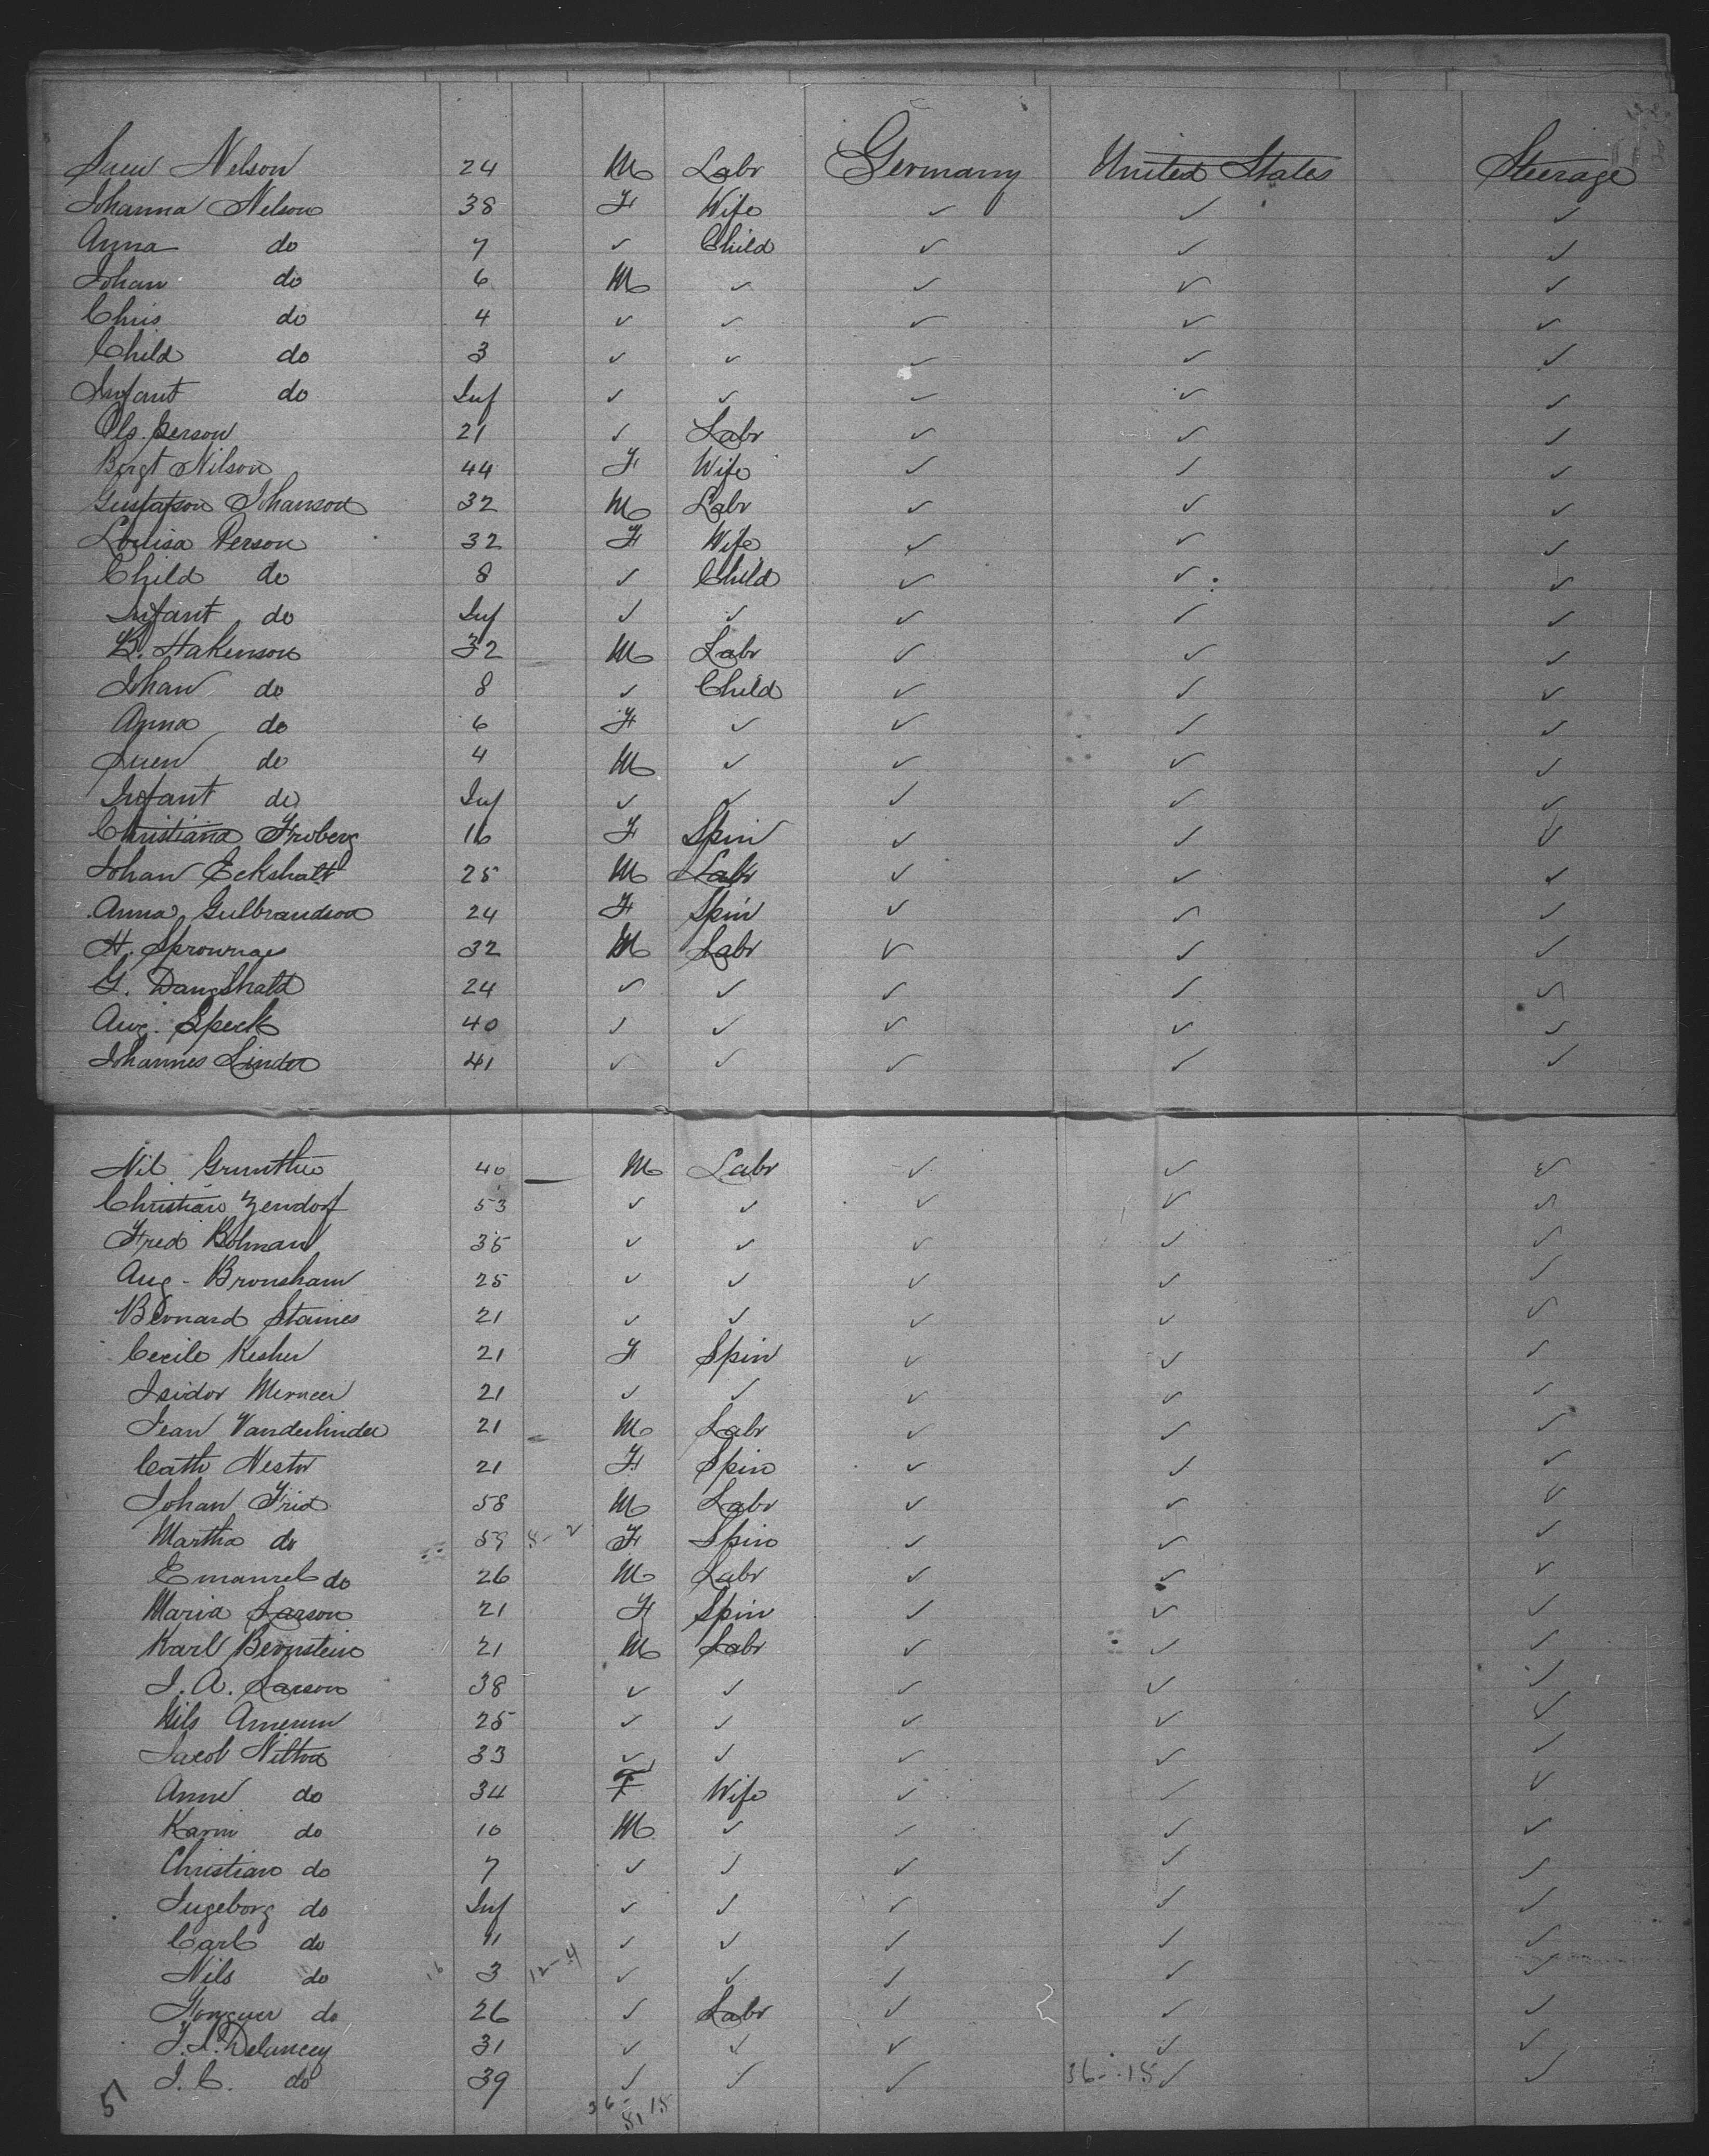 Suen Nelson 24 M Labr Germany United States Steerage
Johanna Nelson 38 F Wife ✓ ✓ ✓
Anna do 7 ✓ Child ✓ ✓ ✓
Johan do 6 M ✓ ✓ ✓ ✓
Chris do 4 ✓ ✓ ✓ ✓ ✓
Child do 3 ✓ ✓ ✓ ✓ ✓
Infant do Inf ✓ ✓ ✓ ✓ ✓
Ols. person 21 ✓ Labr ✓ ✓ ✓
Bergt Nilson 44 F Wife ✓ ✓ ✓
Gustafson Johanson 32 M Labr ✓ ✓ ✓
Louisa Person 32 F Wife ✓ ✓ ✓
Child do 8 ✓ Child ✓ ✓ ✓
Infant do Inf ✓ ✓ ✓ ✓ ✓
B. Hakenson 32 M Labr ✓ ✓ ✓
Johan do 8 ✓ Child ✓ ✓ ✓
Anna do 6 F ✓ ✓ ✓ ✓
Suen do 4 M ✓ ✓ ✓ ✓
Infant do Inf ✓ ✓ ✓ ✓ ✓
Christiana Froberg 16 F Spin ✓ ✓ ✓
Johan Eckshalt 25 M Labr ✓ ✓ ✓
Anna Gulbrandson 24 F Spin ✓ ✓ ✓
H. 32 M Labr ✓ ✓ ✓
G. Dangshald 24 ✓ ✓ ✓ ✓ ✓
Aug. Speck 40 ✓ ✓ ✓ ✓ ✓
Johannes Linder 41 ✓ ✓ ✓ ✓ ✓
Nil 40 M Labr ✓ ✓ ✓
Christian Zendorf 53 ✓ ✓ ✓ ✓ ✓
Fred Bolman 35 ✓ ✓ ✓ ✓ ✓
Aug - Bronsham 25 ✓ ✓ ✓ ✓ ✓
Bernard Staines 21 ✓ ✓ ✓ ✓ ✓
Cecile Kesher 21 F Spin ✓ ✓ ✓
Isidor 21 ✓ ✓ ✓ ✓ ✓
Jean Vanderlinden 21 M Labr ✓ ✓ ✓
Cath Nestor 21 F Spin ✓ ✓ ✓
Johan Frid 58 M Labr ✓ ✓ ✓
Martha do 59 F Spin ✓ ✓ ✓
Emanuel do 26 M Labr ✓ ✓ ✓
Maria Larson 21 F Spin ✓ ✓ ✓
Karl Bernstein 21 M Labr ✓ ✓ ✓
J. A. Larson 38 ✓ ✓ ✓ ✓ ✓
Nils 25 ✓ ✓ ✓ ✓ ✓
Jacob Nilton 33 ✓ ✓ ✓ ✓ ✓
Anne do 34 F Wife ✓ ✓ ✓
Karin do 10 M ✓ ✓ ✓ ✓
Christian do 7 ✓ ✓ ✓ ✓ ✓
Ingeborg do Inf ✓ ✓ ✓ ✓ ✓
Carl do 11 ✓ ✓ ✓ ✓ ✓
Nils do 3 12-4 ✓ ✓ ✓ ✓ ✓
do 26 ✓ Labr ✓ ✓ ✓
J. S. Delancey 31 ✓ ✓ ✓ ✓ ✓
J. C. do 39 ✓ ✓ ✓ 36-15 ✓ ✓
51 36-15